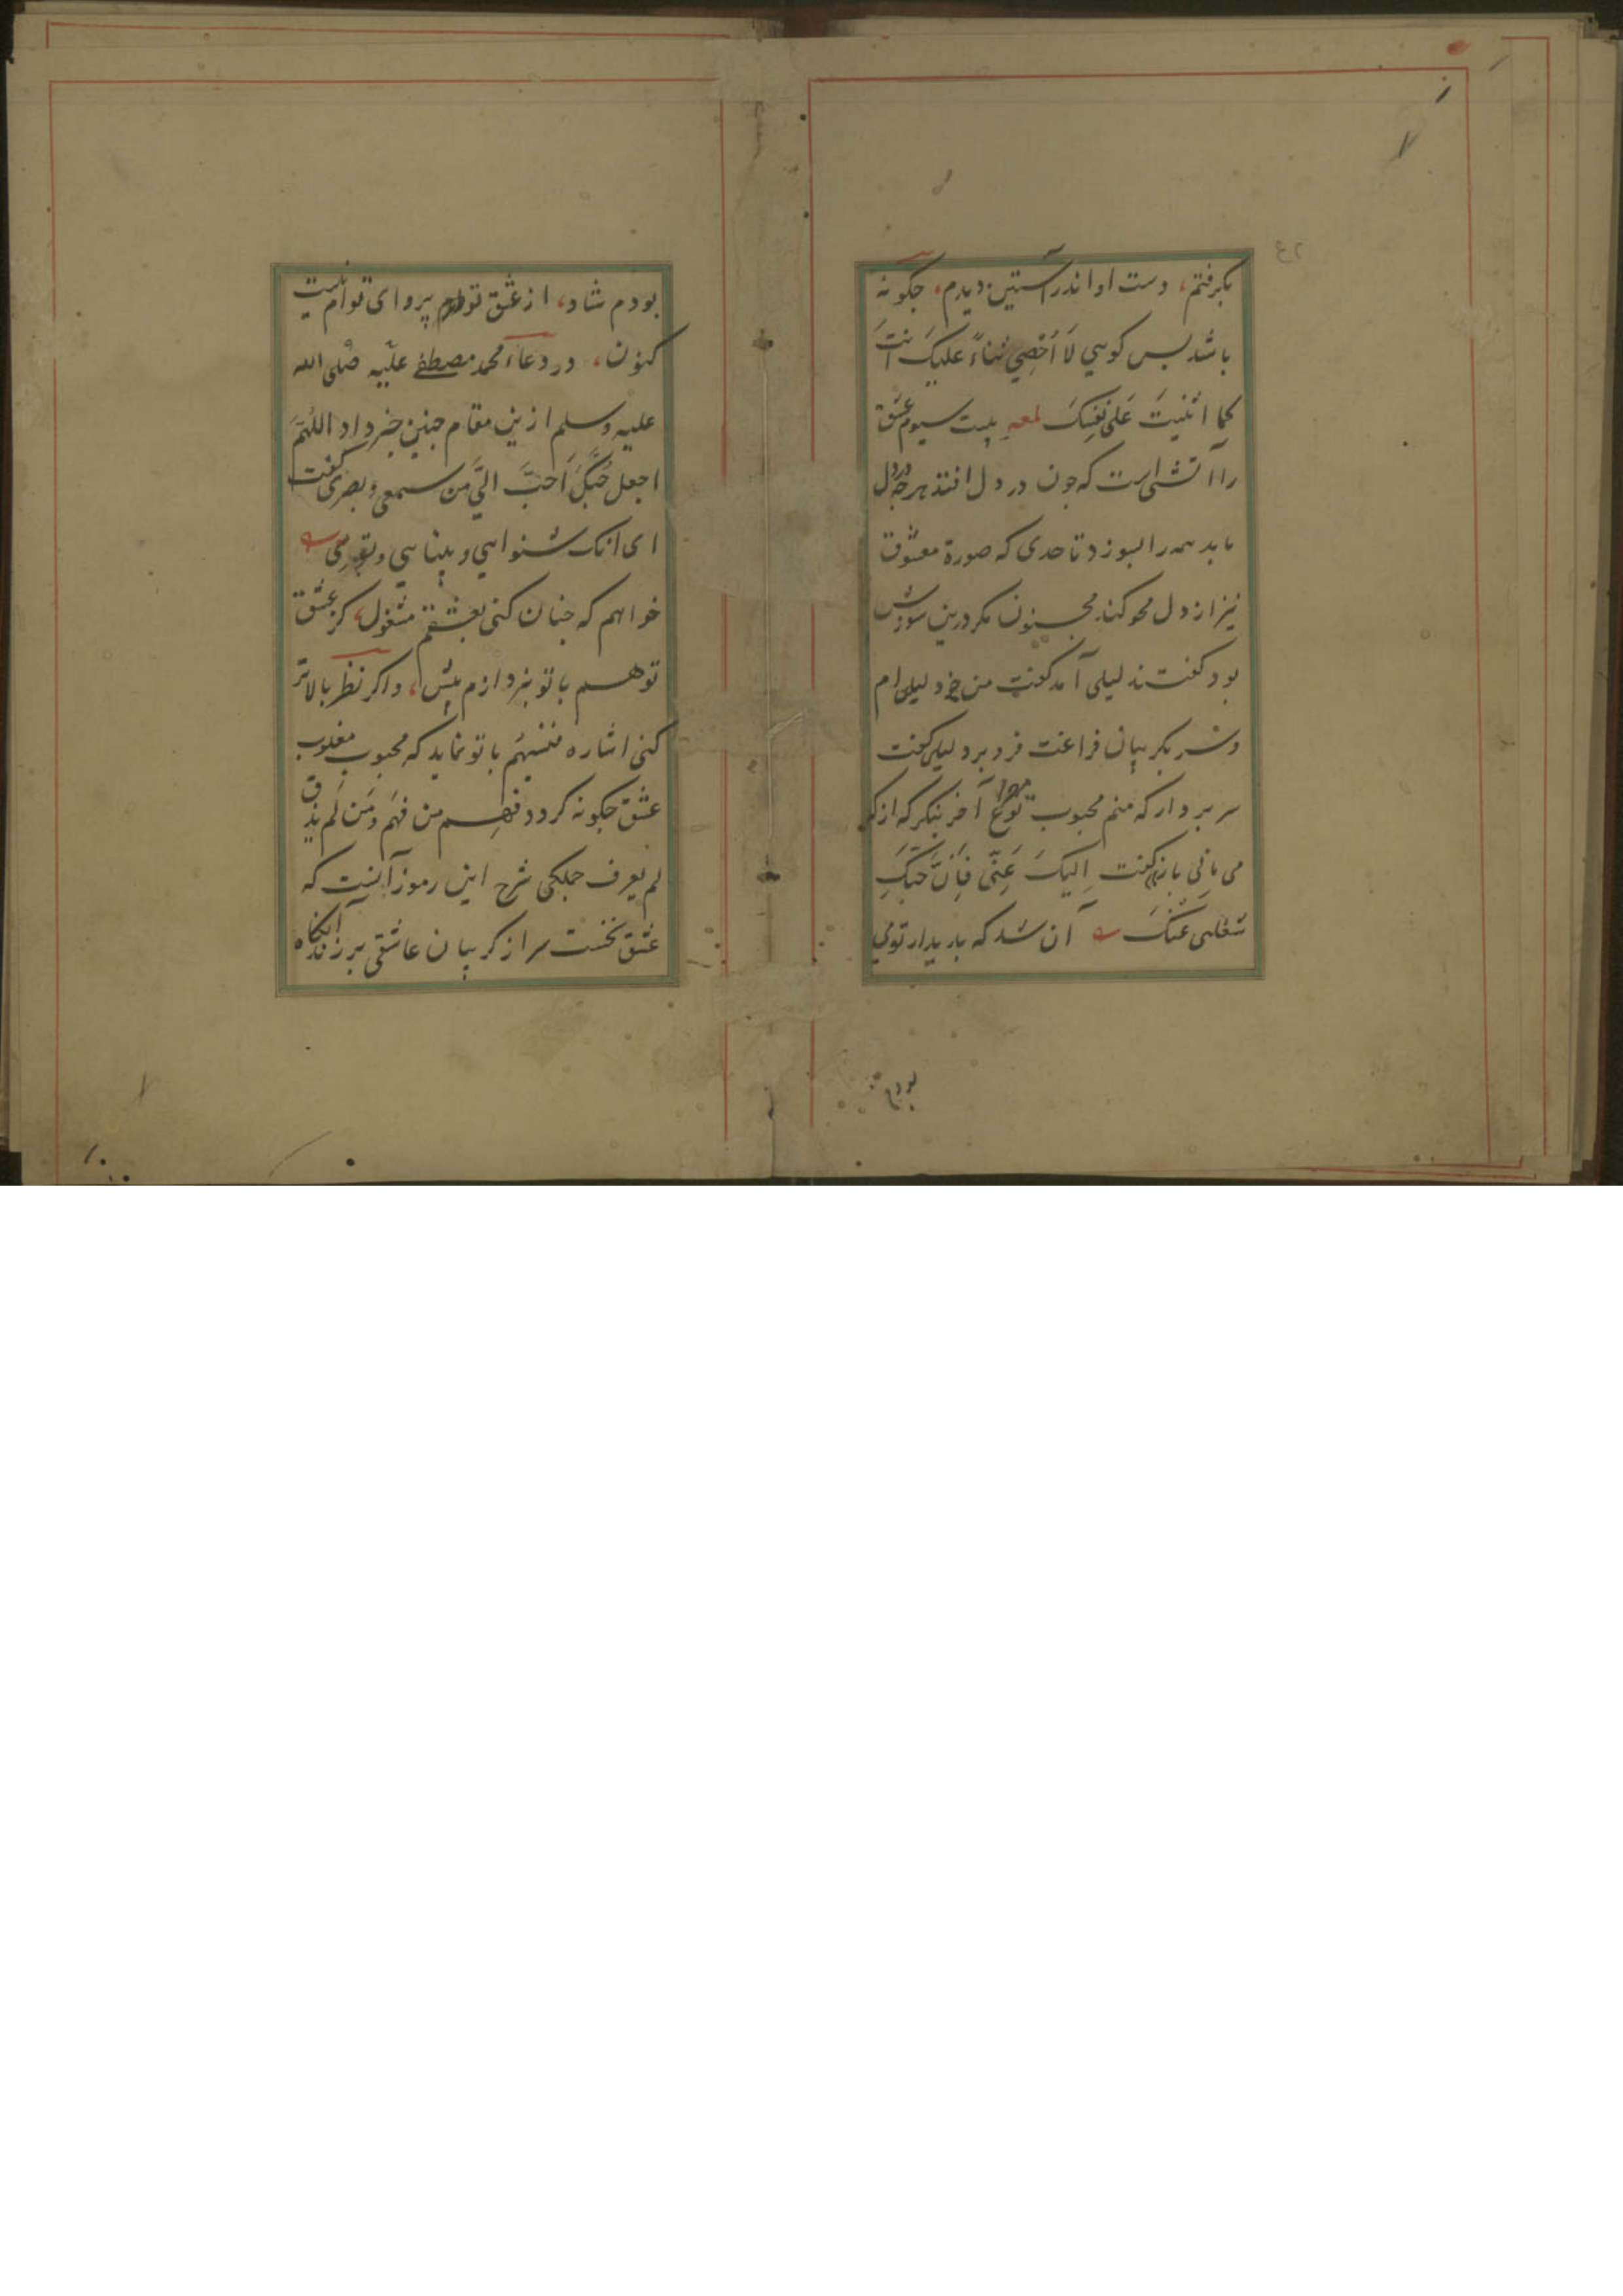 بکرفتم، دست او اندر آستین دیدم، جکونه
باشد بس کویی لَا اُحْصِي ثناءً علیکَ انتَ
کما اثنیتَ عَلی نفسِکَ لمعه بیست سیوم عشق
را آتشی است که جون در دل افتد هرجه در دل
یابد همه را بسوزد تا حدی که صورة معشوق
نیز از دل محو کند مجنون مکر درین سوزش
بود کفتند لیلی آمد کفت من خود لیلی ام
و سر بکریبان فراغت فرو برد لیلی کفت
سر بردار که منم محبوب تو ع آخر بنکر که از که
می مانی باز کفت اِلیکَ عَنِّی فَاِنَّ حُبَّکِ
شغلنی عَنکَ آن شد که بدیدار تو می
بودم
بودم شاد، از عشق تو پروای توام نیست
کنون، در دعاء محمد مصطفی علیه صلی الله
علیه وسلم ازین مقام جنین خبر داد اللهُمَ
اجعل حُبَّکَ اَحبَّ الیَّ مَن سمعی و بصری کفت
ای انک شنوایی و بیناییی و تویی
خواهم که جنان کنی بعشقم مشغول، کز عشق
تو هم با تو نبردازم بیش، و اکر نظر بالاتر
کنی اشاره با تو نماید که محبوب مغلوب
عشق جکونه کردد فهم من فهم وَمَن لَم یذق
لم یعرف جملکی شرح این رموز آنست که
عشق نخست سر از کریبان عاشقی برزند آنکاه